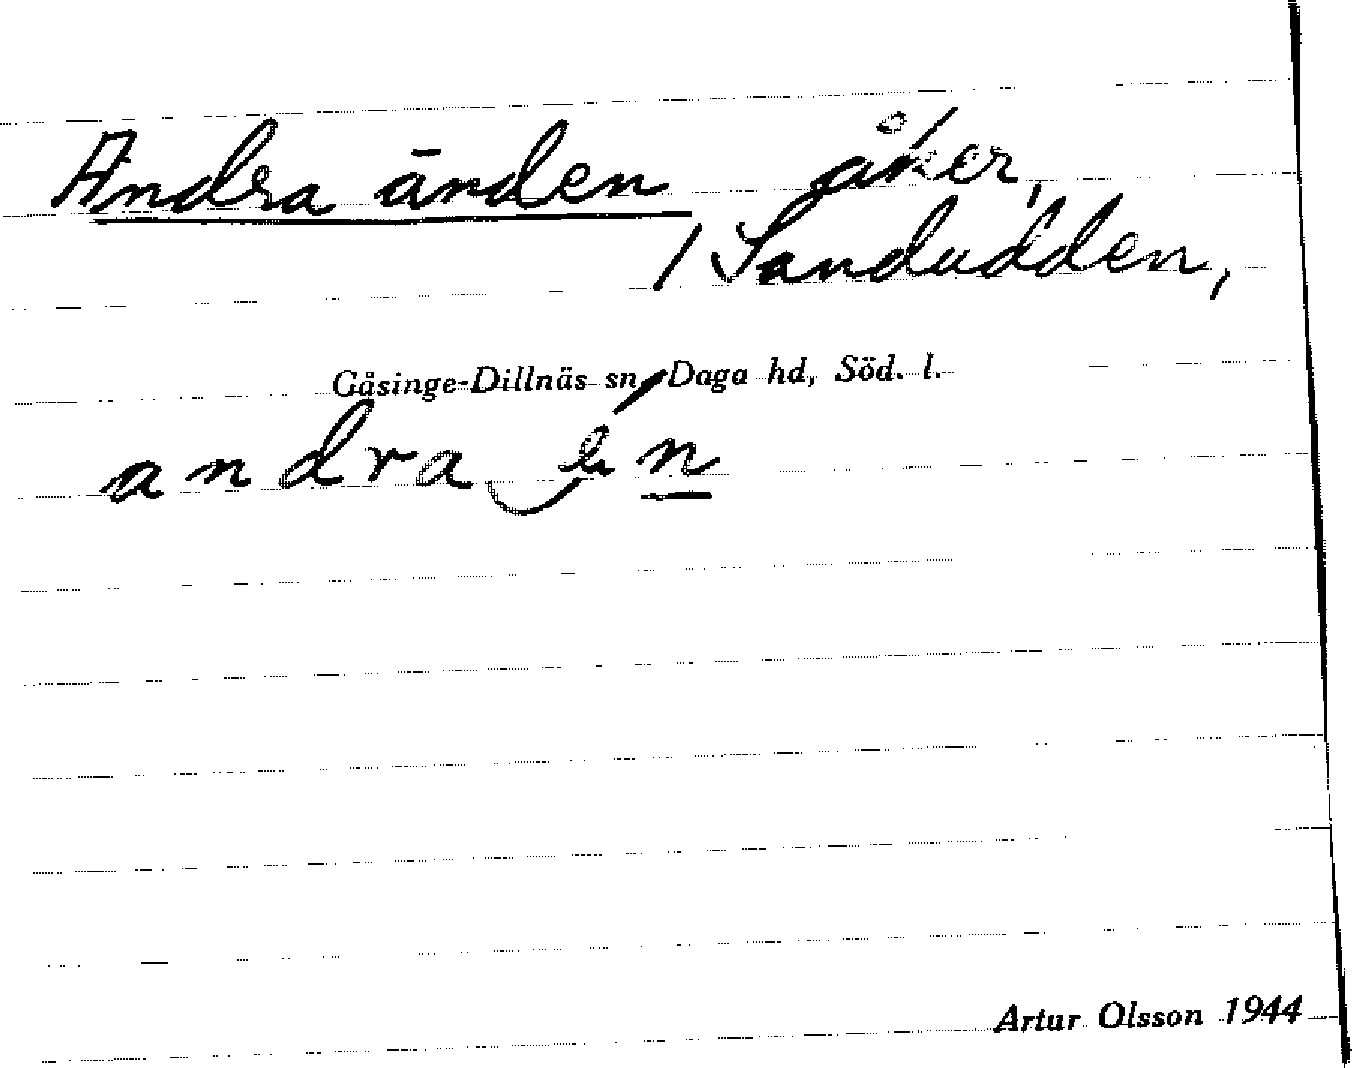 Andra änden åker,
/ Sandudden,
Gåsinge-Dillnäs sn, Daga hd, Söd. l.
andra
Artur Olsson 1944